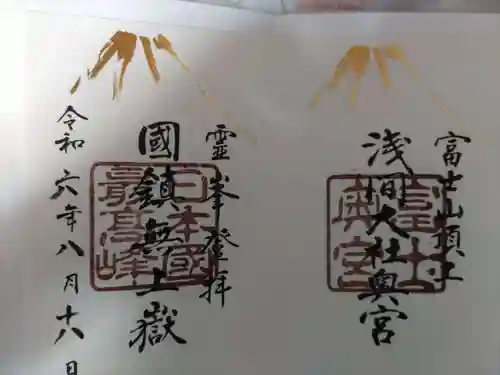 富士山頂上
浅間大社奥宮
富士
奥宮
霊峯登拝
國鎮無上嶽
日本國
最高峰
令和六年八月十八日